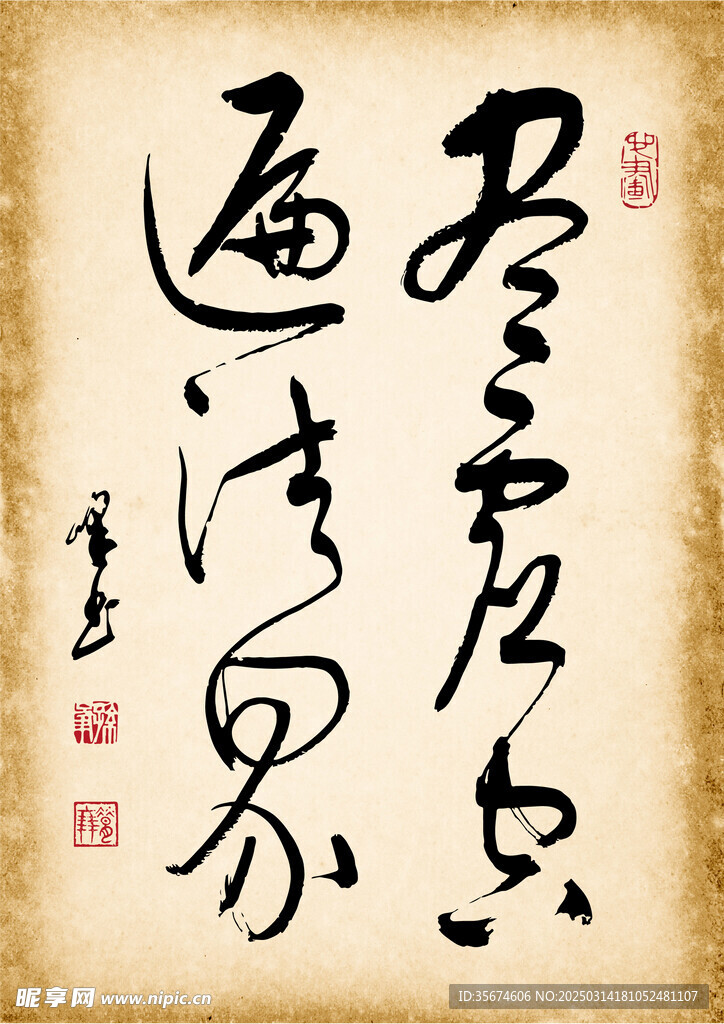 尽虚空
遍法界
昵享网 www.nipic.cn
ID:35674606 NO:20250314181052481107